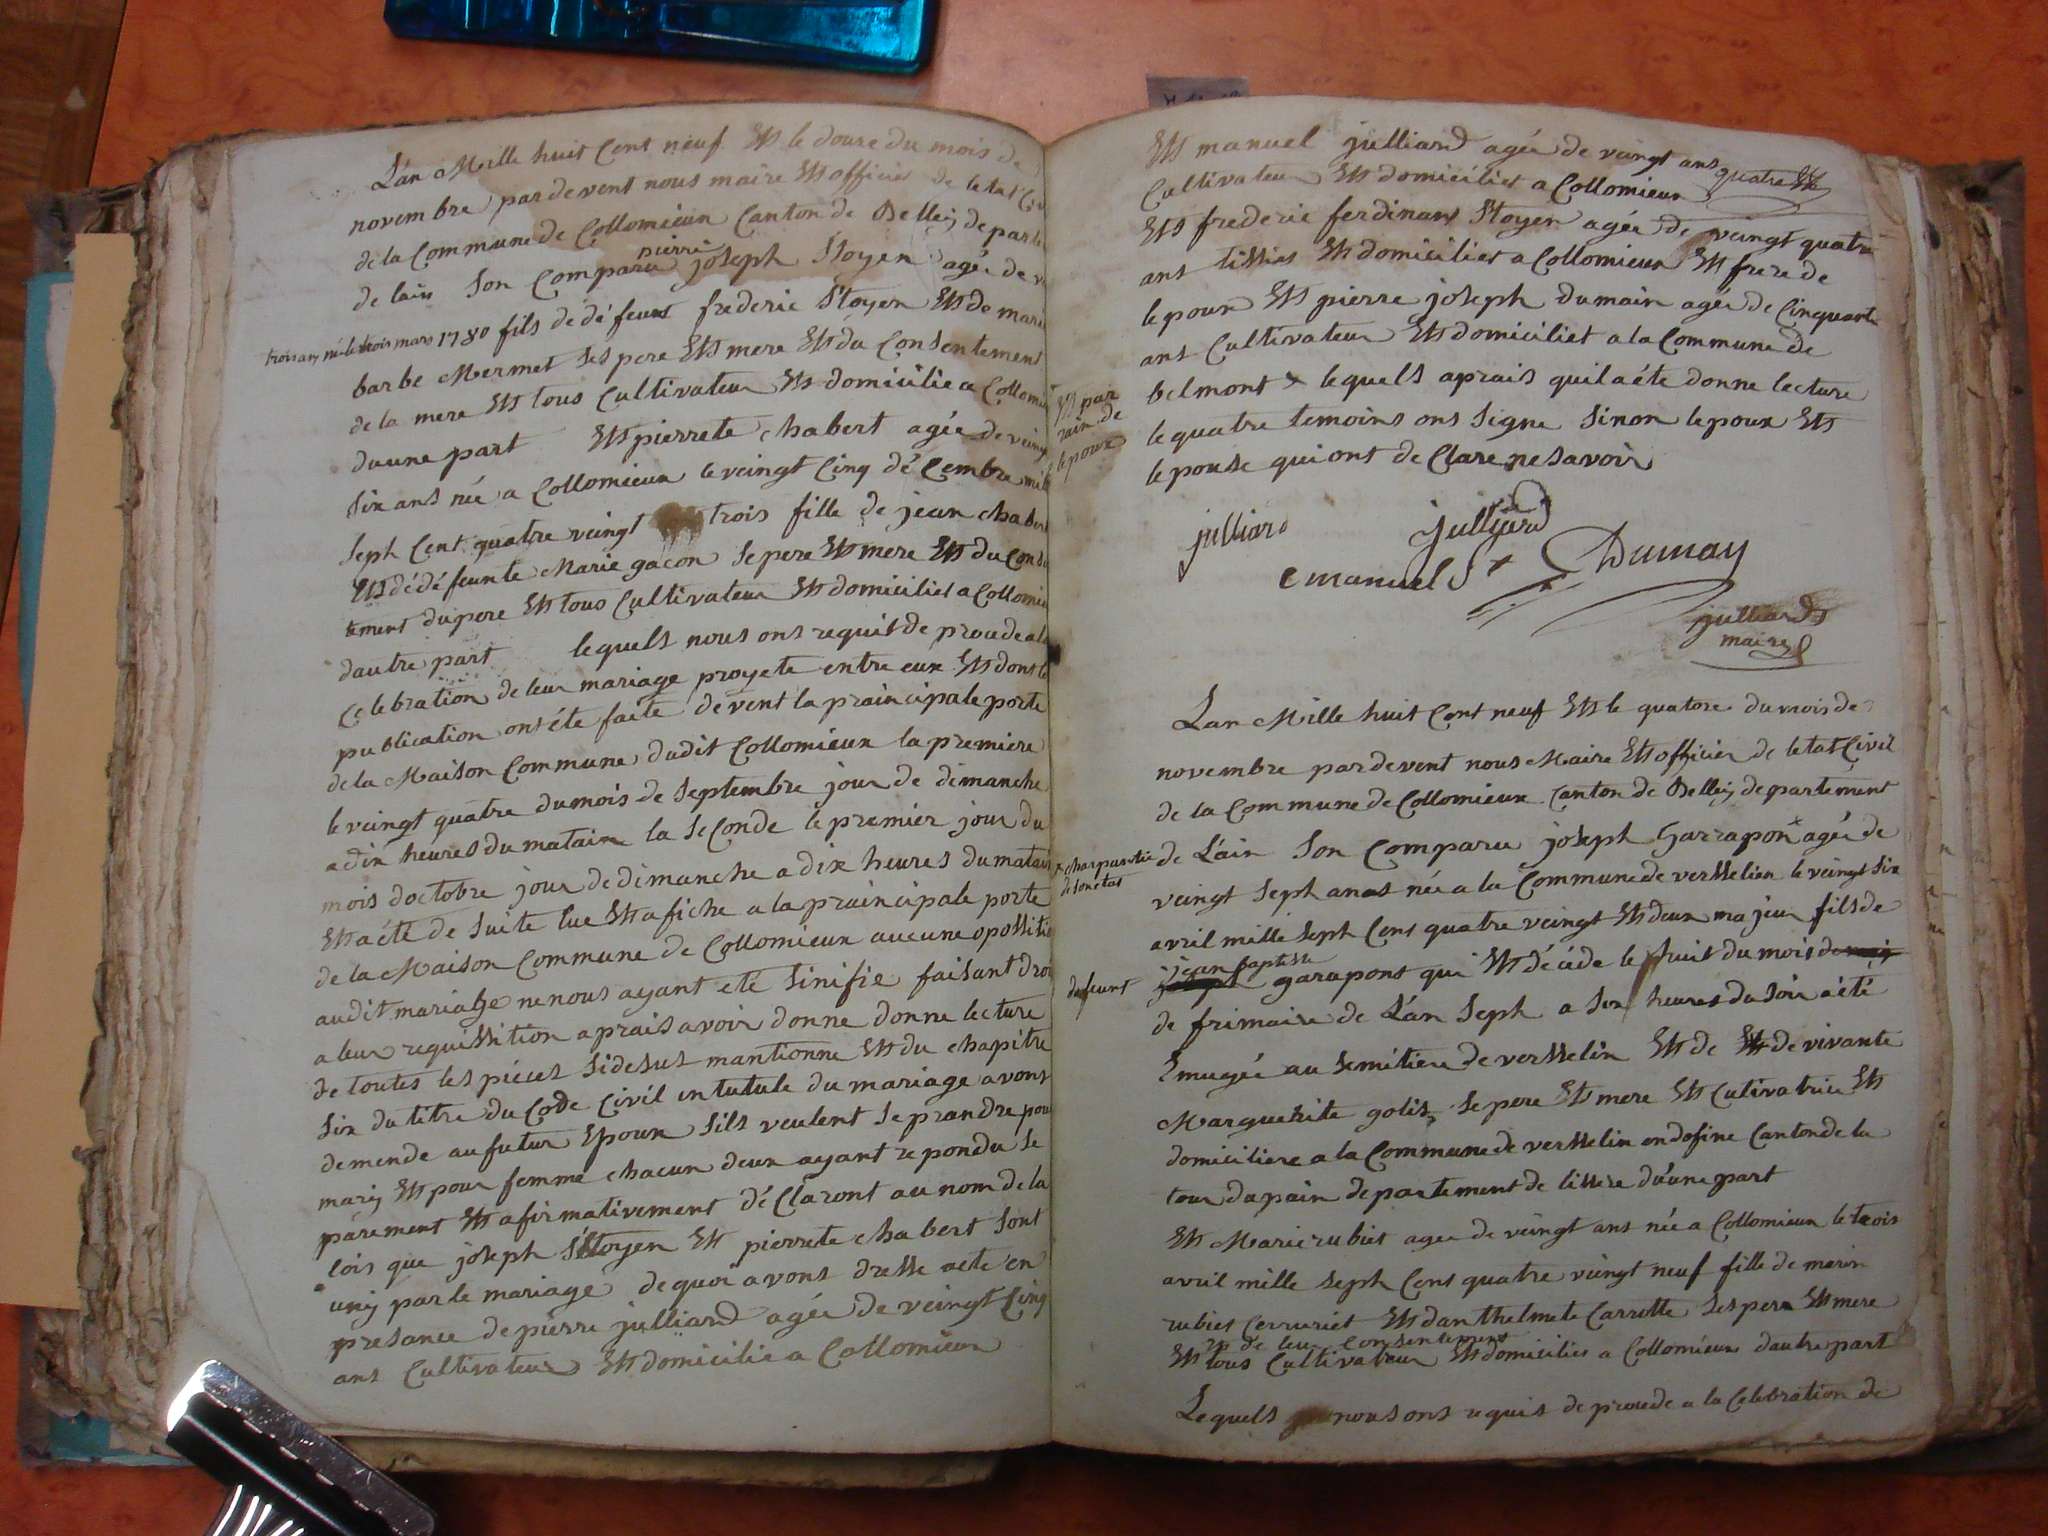 L'an Mille huit Cent neuf Et le douze du mois de
novembre pardevent nous maire Et officier de letat Civ
de la Commune de Collomieux Canton de Belley departe
pierre
de lain Son Comparu joseph Stoyen agée de v
troisans né le trois mars 1780 fils de défeunt frederic Stoyen Et de marie
barbe Mermet Ses pere Et mere Et du Consentement
de la mere Et tous Cultivateur Et domicilie a Collomieu
dune part Et pierrete chabert agée de veingt
Six ans née a Collomieux le veingt Cinq décembre mille
Seph Cent quatre veingt trois fille de jean chabert
Et dédéfeunte Marie gacon Se pere Et mere Et du Conse
tement du pere Et tous Cultivateur Et domicilies a Collomieu
dautre part lequels nous ons requit de proude a la
Celebration de leur mariage proyete entre eux Et dont la
publication ont éte faite devent la praincipale porte
de la Maison Commune dudit Collomieux la premiere
le veingt quatre du mois de Septembre jour de dimanche
a dix heures du matain la Seconde le premier jour du
mois doctobre jour de dimanche a dix heures du matain
Et a été de Suite lue Et afiche a la praincipale porte
de la Maison Commune de Collomieux aucune opossitio
audit mariage ne nous ayant eté Sinifie faisant droi
a leur requissition aprais avoir donne donne lecture
de toutes les piéces Sidesus mantionne Et du chapitre
Six du titre du Code Civil intutule du mariage avons
demende au futur Epoux Sils veulent Se prandre pour
mary Et pour femme chacun deux ayant repondu Se
parement Et afirmativement déClaront au nom de la
lois que joseph Stoyen Et pierrete chabert Sont
uniy par le mariage de quoi avons dresse acte en
presance de pierre julliard agée de veingt Cinq
ans Cultivateur Et domicilie a Collomieux
Et manuel julliard agée de veingt ans quatre
Cultivateur Et domicilies a Collomieux
Et frederic ferdinant Stoyen agée de veingt quatre
ans tissier Et domicilier a Collomieux Et frere de
lepoux Et pierre joseph dumain agée de Cinquante
ans Cultivateur Et domiciliet a la Commune de
Et par
rain de
lepoux
belmont x lequels aprais quil a éte donne lecture
le quatre temoins ons Signe Sinon lepoux Et
lepouse qui ont de Clare ne savoir
julliard julliard
emanuel St Dumay
julliard
maire
Lan Mille huit Cent neuf Et le quatore du mois de
novembre pardevent nous Maire Et officier de letat Civil
de la Commune de Collomieux Canton de Belley departement
x charpantie
de son etat
de L'ain Son Comparu joseph Garrapon x agée de
veingt Seph anas née a la Commune de versselien le veingt Six
avril mille Seph Cent quatre veingt Et deux majeur fils de
jean baptiste
defeunt joseph garapont qui Et décéde le huit du mois de
de frimaire de L'an Seph a Six heures du Soir a été
Emugée au Semétiere de versselin Et de Et de vivante
Marguerite golis, Se pere Et mere Et Cutivatrice Et
domiciliere a la Commune de versselin en dofine Canton de la
tour du pain departement de lissere dune part
Et Marie rubiet agee de veingt ans née a Collomieux le trois
avril mille Seph Cent quatre veingt neuf fille de marin
rubiet Cerruriet Et danthelmete Carrotte Ses pere Et mere
et de leur consentement
Et tous Cultivateur Et domicilies a Collomieux dautre part
Lequels nous ons requis de proude a la Celebration de